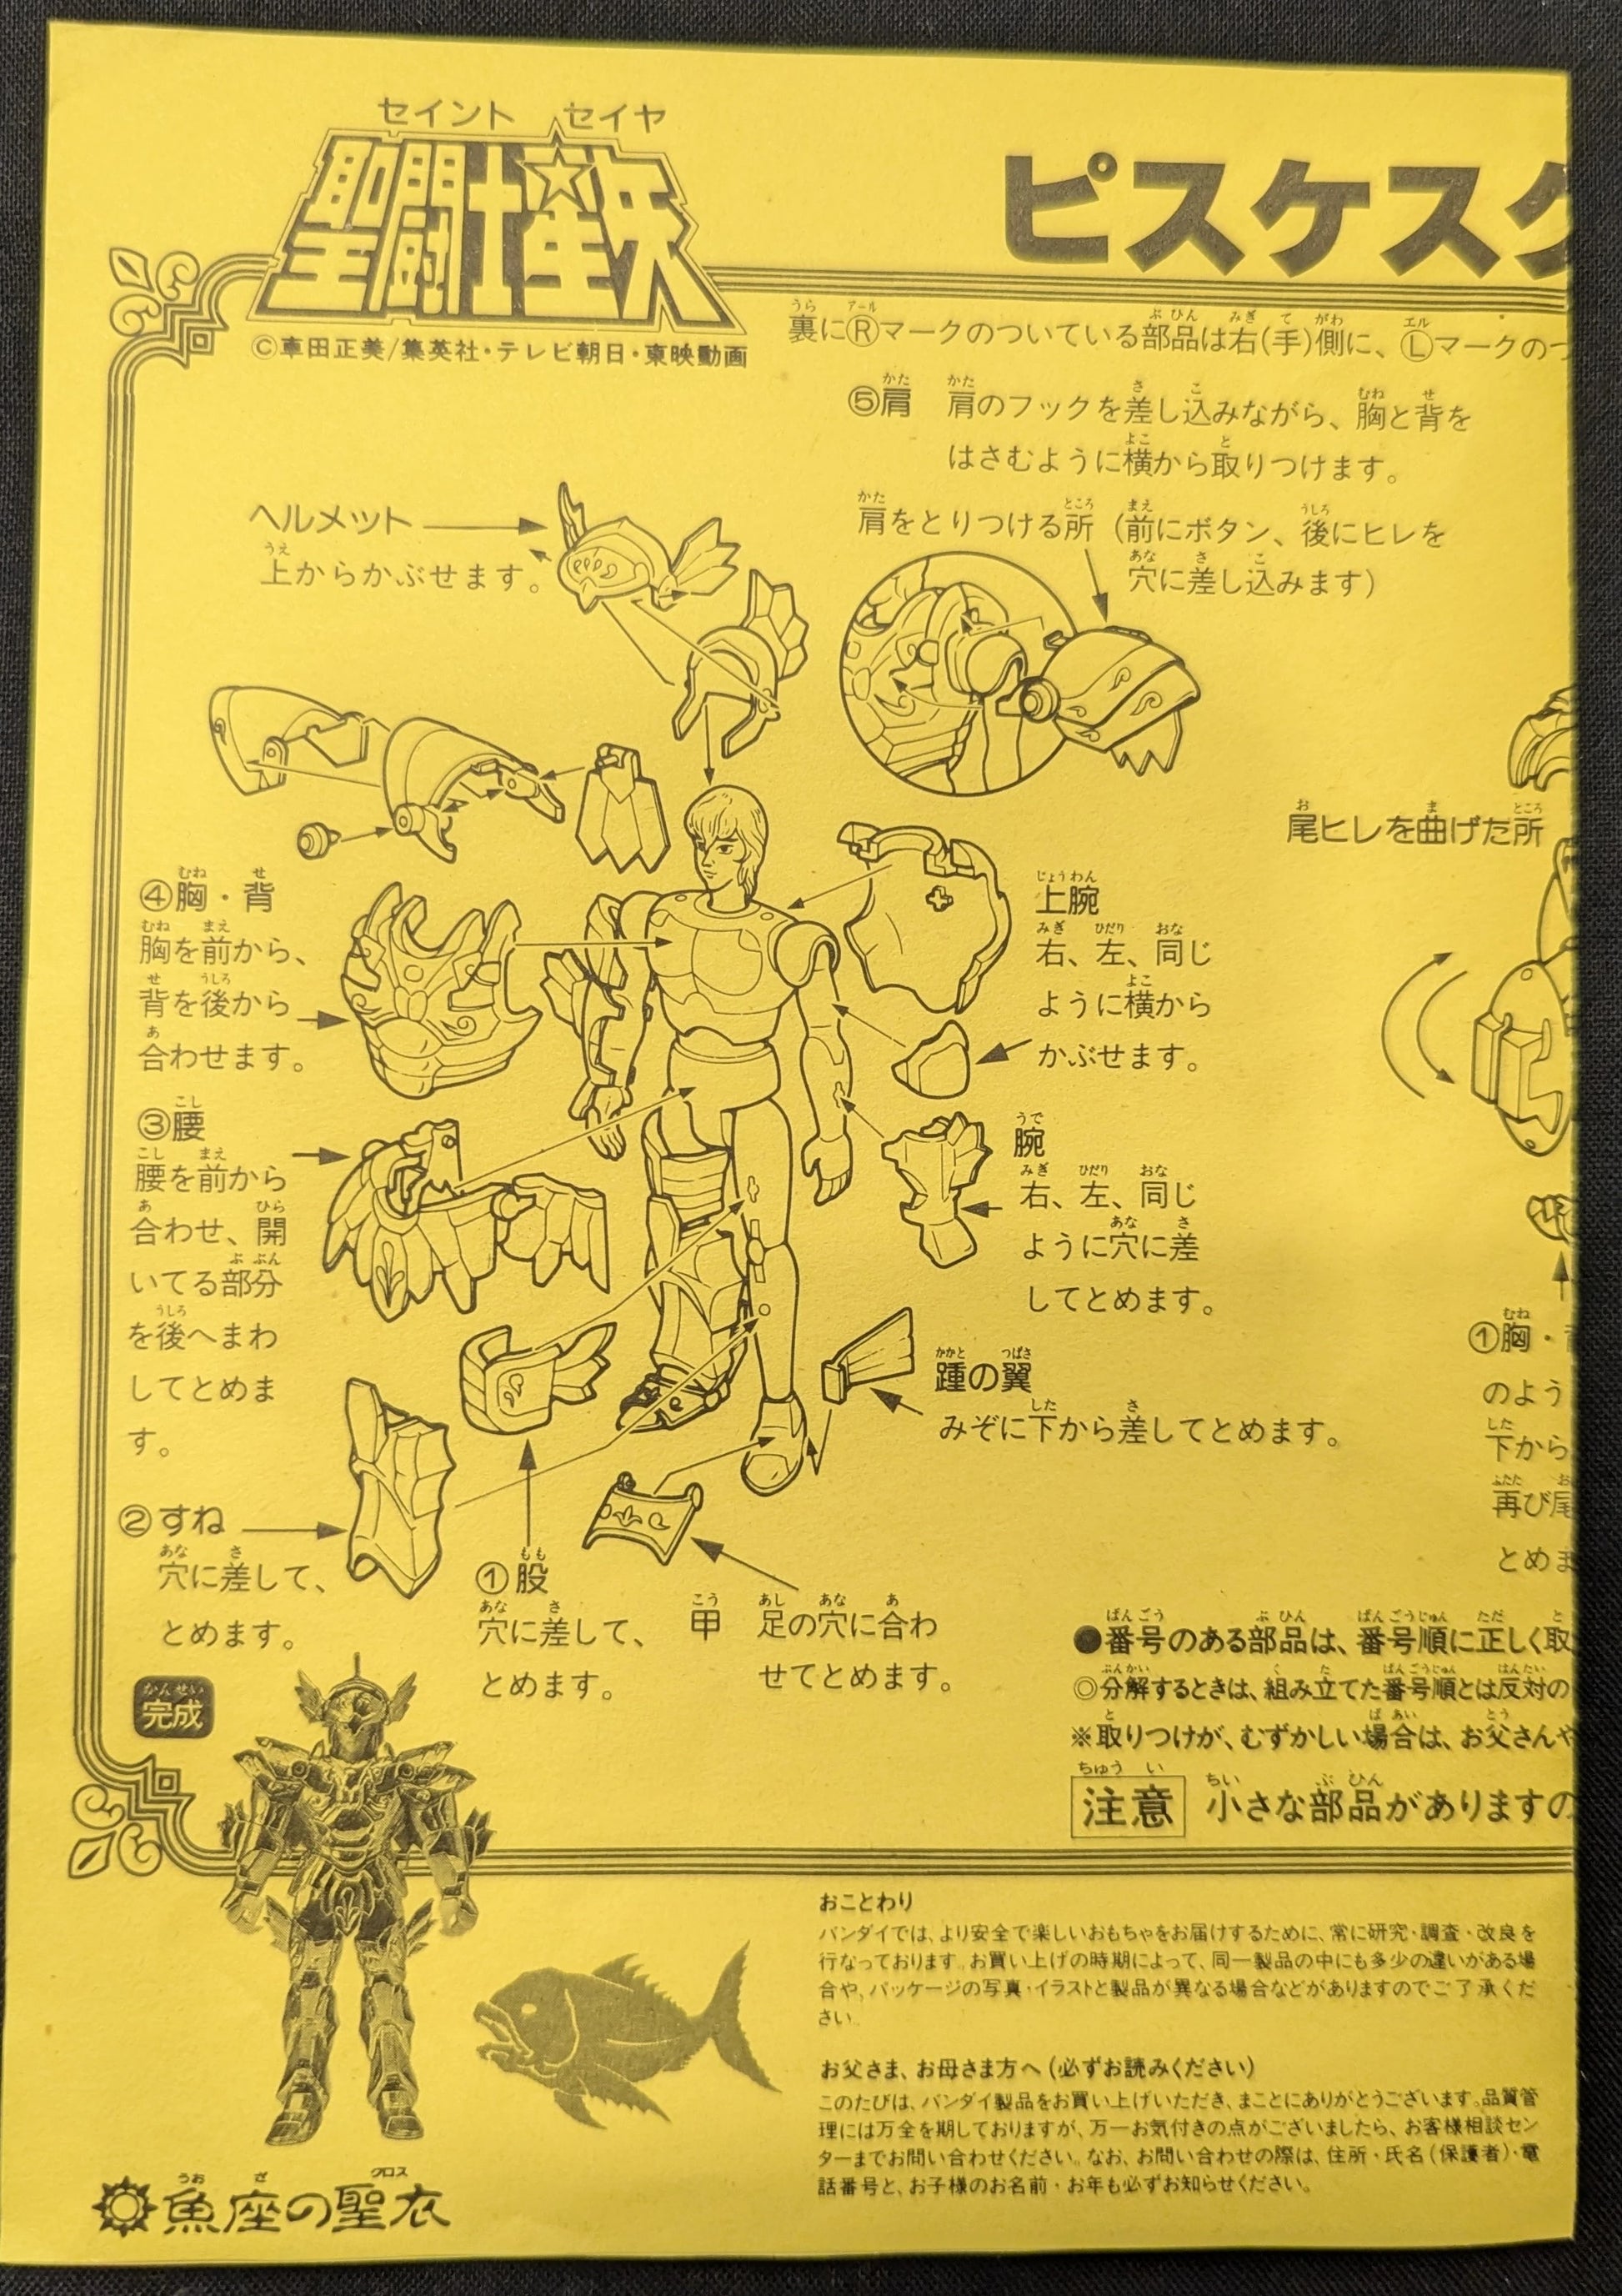 セイント セイヤ
聖闘士星矢
©車田正美/集英社・テレビ朝日・東映動画
ピスケスク
裏にⓇマークのついている部品は右(手)側に、Ⓛマークのつ
⑤肩 肩のフックを差し込みながら、胸と背を
はさむように横から取りつけます。
肩をとりつける所 (前にボタン、後にヒレを
穴に差し込みます)
ヘルメット
上からかぶせます。
尾ヒレを曲げた所
④胸・背
胸を前から、
背を後から
合わせます。
上腕
右、左、同じ
ように横から
かぶせます。
③腰
腰を前から
合わせ、開
いてる部分
を後へまわ
してとめま
す。
腕
右、左、同じ
ように穴に差
してとめます。
踵の翼
みぞに下から差してとめます。
①胸・
のよう
下から
再び尾
とめま
②すね
穴に差して、
とめます。
①股
穴に差して、
とめます。
甲 足の穴に合わ
せてとめます。
●番号のある部品は、番号順に正しく取
◎分解するときは、組み立てた番号順とは反対の
※取りつけが、むずかしい場合は、お父さんや
注意 小さな部品がありますの
完成
魚座の聖衣
クロス
おことわり
バンダイでは、より安全で楽しいおもちゃをお届けするために、常に研究・調査・改良を
行なっております。お買い上げの時期によって、同一製品の中にも多少の違いがある場
合や、パッケージの写真・イラストと製品が異なる場合などがありますのでご了承くだ
さい。
お父さま、お母さま方へ(必ずお読みください)
このたびは、バンダイ製品をお買い上げいただき、まことにありがとうございます。品質管
理には万全を期しておりますが、万一お気付きの点がございましたら、お客様相談セン
ターまでお問い合わせください。なお、お問い合わせの際は、住所・氏名(保護者)・電
話番号と、お子様のお名前・お年も必ずお知らせください。